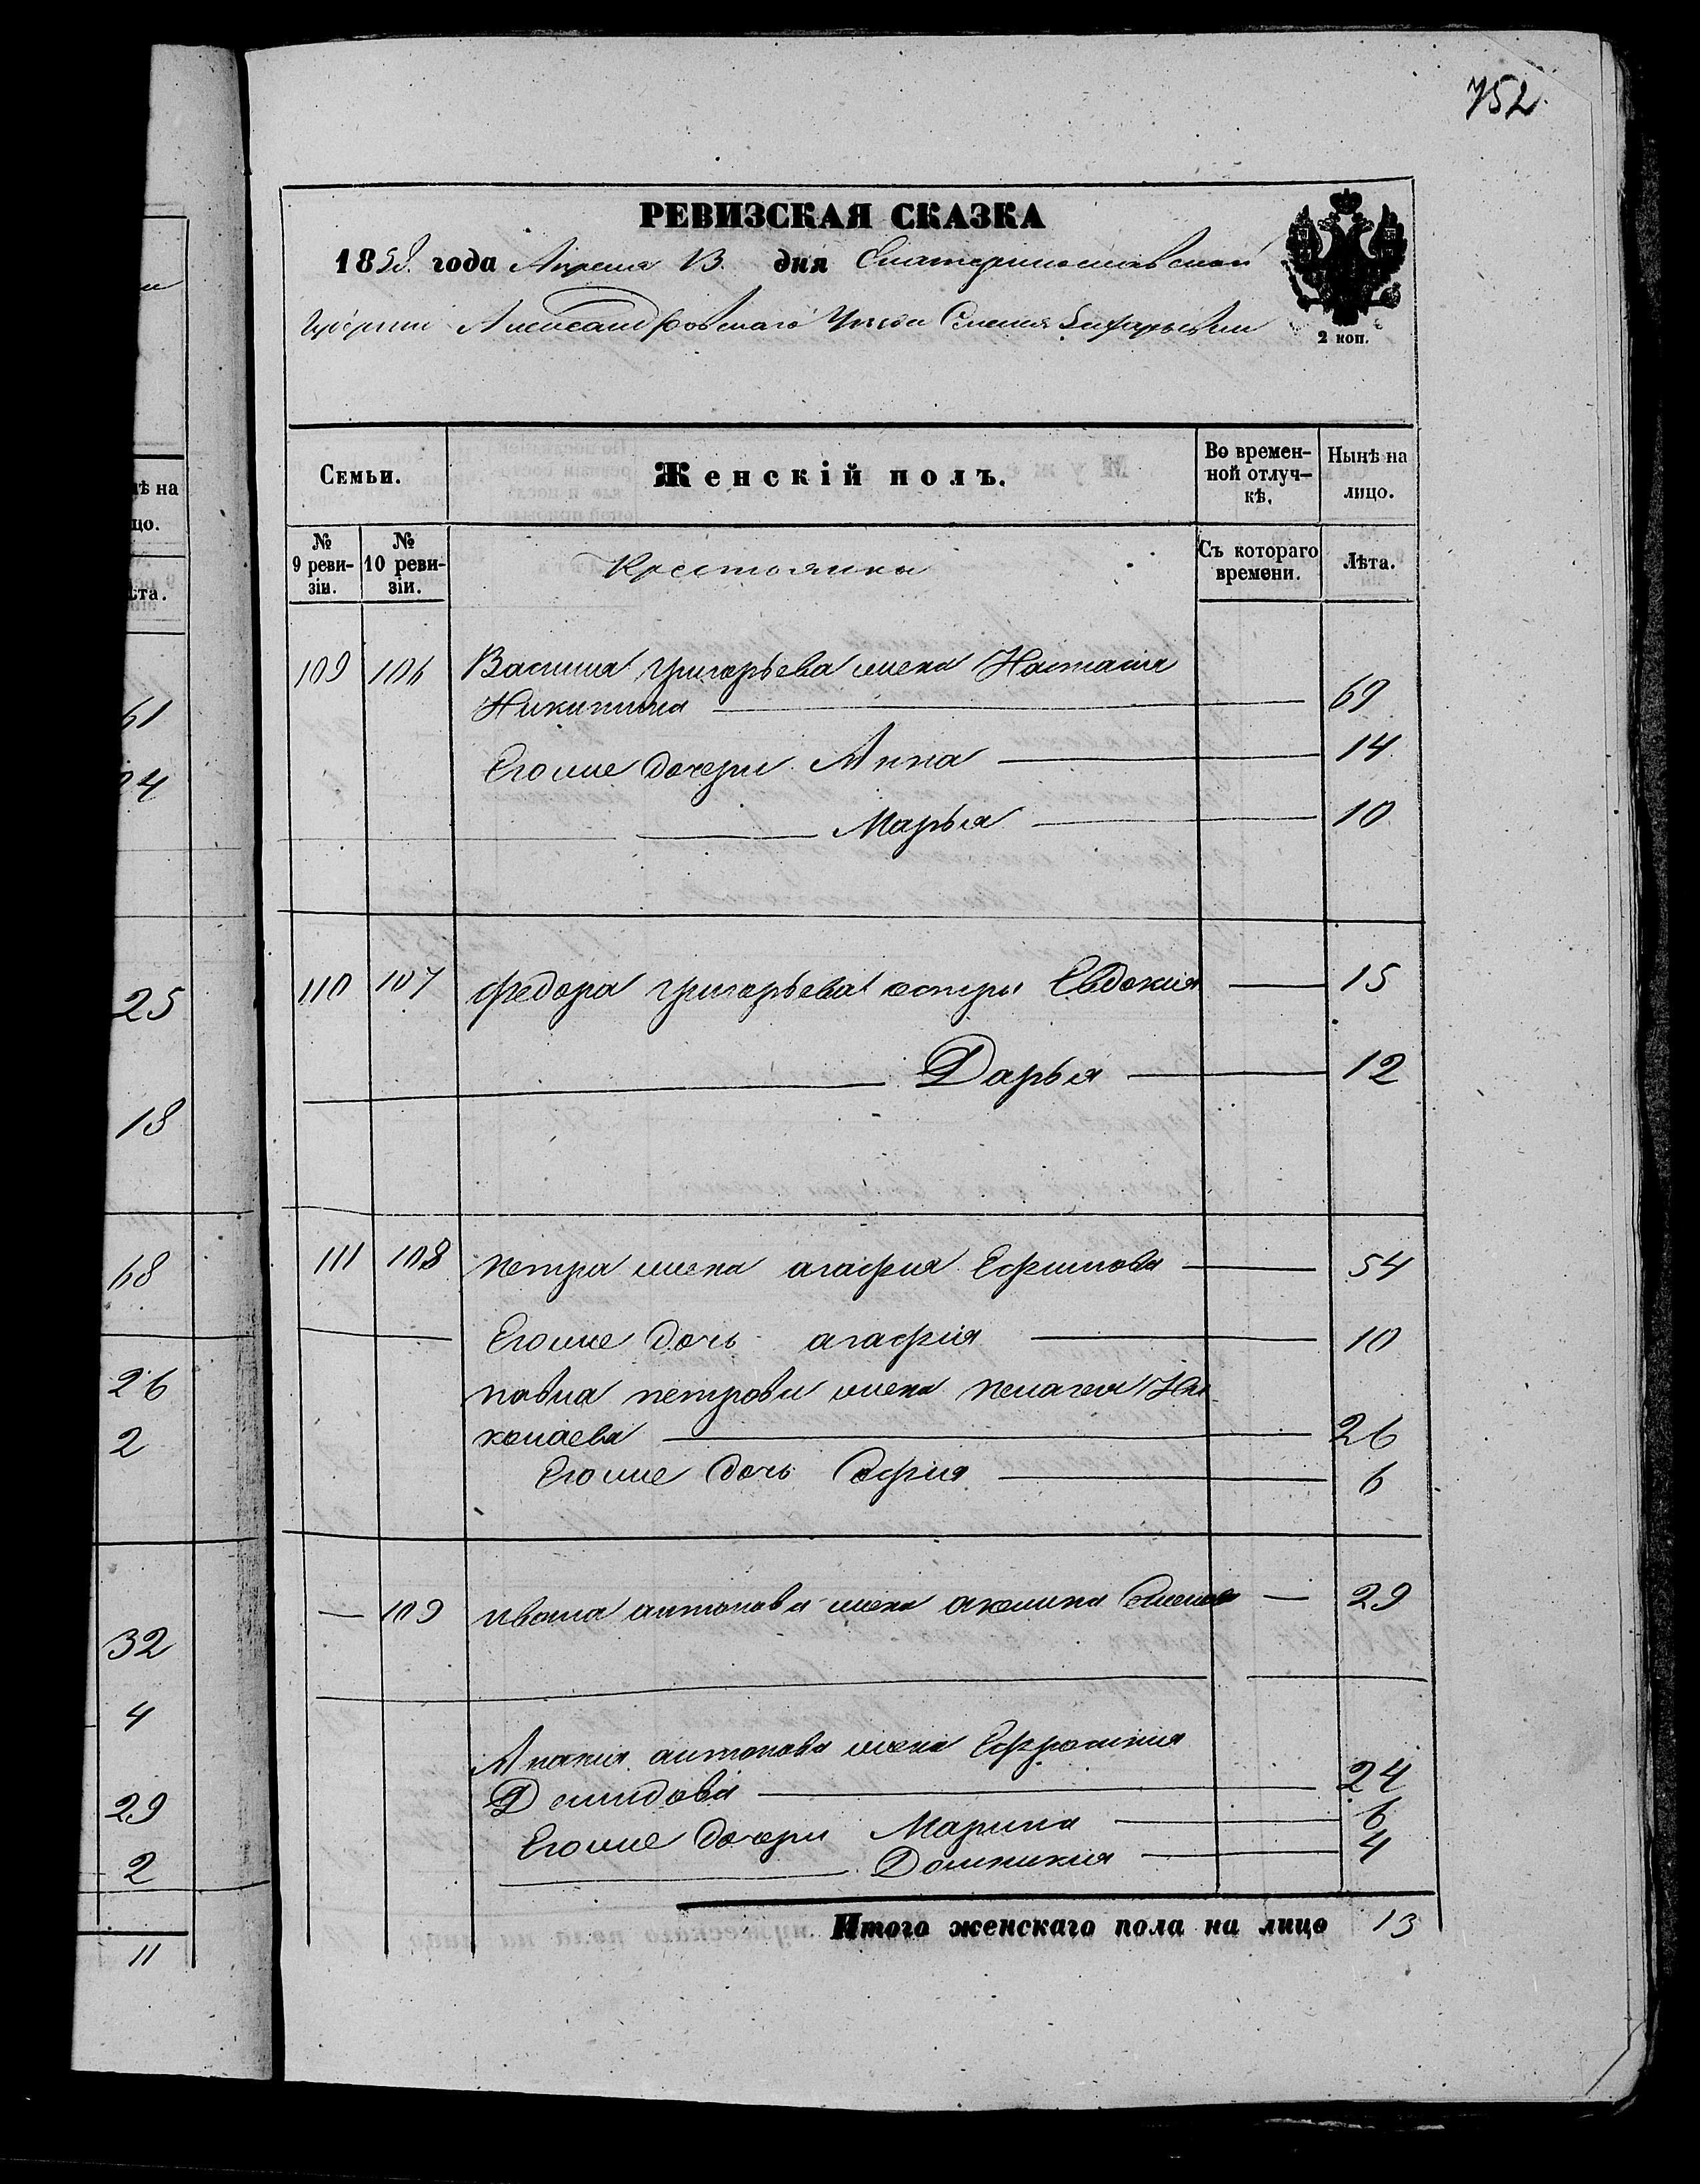 752.
РЕВИЗСКАЯ СКАЗКА
1858 года Апреля 13. дня Екатеринославской
Губерніи Александровскаго Уезда Селенія Захарьевки
2 коп.
Семьи.
Женскій полъ.
Во времен-
ной отлуч-
кѣ.
Нынѣ на
лицо.
№
9 реви-
зіи.
№
10 реви-
зіи.
Крестьянки
Съ котораго
времени.
Лѣта.
109 106 Василия григорьева жена Настасия
Никитина 69
Егоже дочери Анна 14
Марья 10
110 107 федора григорьева сестры Евдокия 15
Дарья 12
111 108 петра жена агафия Ефимова 54
Егоже дочь агафия 10
павла петрова жена пелагея Ни
колаева 26
Егоже дочь София 6
109 ивана антонова жена акилина 29
антонова жена Ефросиния
Демидова 24
Егоже дочери Марина 6
Домникия 4
Итого женскаго пола на лицо 13
нѣ на
цо.
ѣта.
61
25
18
68
26
2
32
4
29
2
11